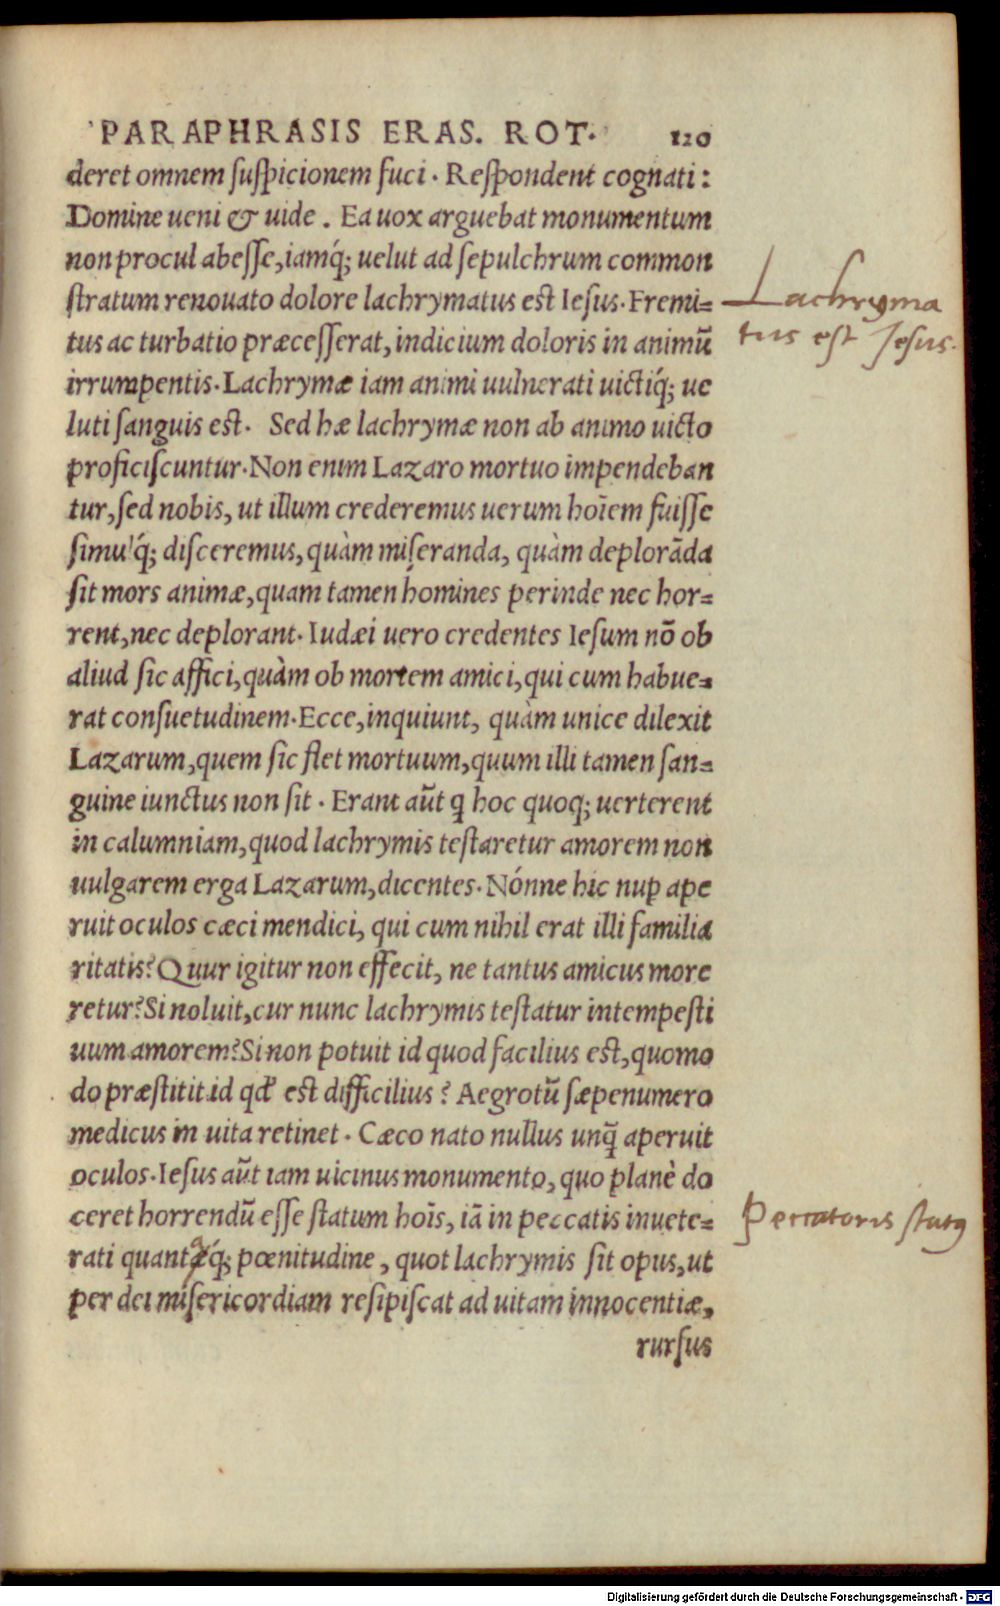 PARAPHRASIS ERAS. ROT. 120
deret omnem suspicionem fuci. Respondent cognati:
Domine ueni & uide. Ea uox arguebat monumentum
non procul abesse, iamq́; uelut ad sepulchrum common
stratum renouato dolore lachrymatus est Iesus. Fremi=
tus ac turbatio præcesserat, indicium doloris in animū
irrumpentis. Lachrymæ iam animi uulnerati uictiq́; ue
luti sanguis est. Sed hæ lachrymæ non ab animo uicto
proficiscuntur. Non enim Lazaro mortuo impendeban
tur, sed nobis, ut illum crederemus uerum hoīem fuisse
simulq́; disceremus, quàm miseranda, quàm deplorāda
sit mors animæ, quam tamen homines perinde nec hor=
rent, nec deplorant. Iudæi uero credentes Iesum nō ob
aliud sic affici, quàm ob mortem amici, qui cum habue=
rat consuetudinem. Ecce, inquiunt, quàm unice dilexit
Lazarum, quem sic flet mortuum, quum illi tamen san=
guine iunctus non sit. Erant aūt q hoc quoq; uerterent
in calumniam, quod lachrymis testaretur amorem non
uulgarem erga Lazarum, dicentes. Nónne hic nuꝑ ape
ruit oculos cæci mendici, qui cum nihil erat illi familia
ritatis? Quur igitur non effecit, ne tantus amicus more
retur? Si noluit, cur nunc lachrymis testatur intempesti
uum amorem? Si non potuit id quod facilius est, quomo
do præstitit id qd' est difficilius? Aegrotū sæpenumero
medicus in uita retinet. Cæco nato nullus unq̄ aperuit
oculos. Iesus aūt iam uicinus monumento, quo planè do
ceret horrendū esse statum hoīs, iā in peccatis inuete=
rati quantaq́; pœnitudine, quot lachrymis sit opus, ut
per dei misericordiam resipiscat ad uitam innocentiæ,
rursus
Lachryma
tus est Jesus.
Peccatoris statꝰ
Digitalisierung gefördert durch die Deutsche Forschungsgemeinschaft - DFG